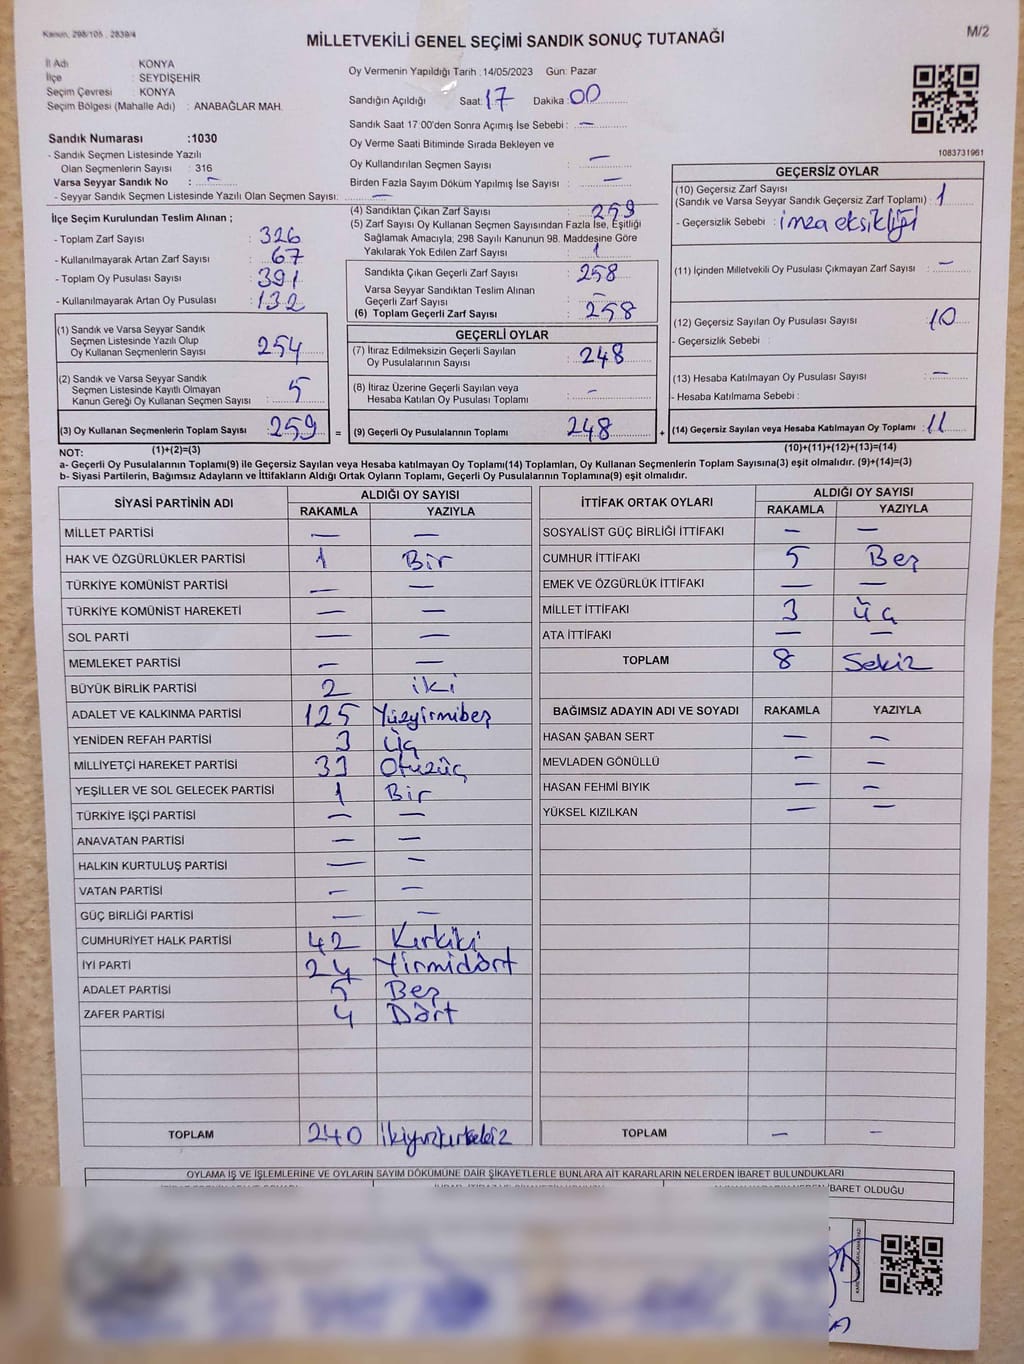 Kanun, 298/105 , 2839/4
M/2
MİLLETVEKİLİ GENEL SEÇİMİ SANDIK SONUÇ TUTANAĞI
İl Adı : KONYA
İlçe : SEYDİŞEHİR
Seçim Çevresi : KONYA
Seçim Bölgesi (Mahalle Adı) : ANABAĞLAR MAH.
Sandık Numarası :1030
- Sandık Seçmen Listesinde Yazılı
Olan Seçmenlerin Sayısı : 316
Varsa Seyyar Sandık No : —
- Seyyar Sandık Seçmen Listesinde Yazılı Olan Seçmen Sayısı: —
Oy Vermenin Yapıldığı Tarih :14/05/2023 Gün: Pazar
Sandığın Açıldığı Saat: 17 Dakika: 00
Sandık Saat 17:00'den Sonra Açımış İse Sebebi : —
Oy Verme Saati Bitiminde Sırada Bekleyen ve
Oy Kullandırılan Seçmen Sayısı : —
Birden Fazla Sayım Döküm Yapılmış İse Sayısı : —
1083731961
İlçe Seçim Kurulundan Teslim Alınan ;
- Toplam Zarf Sayısı : 326
- Kullanılmayarak Artan Zarf Sayısı : 67
- Toplam Oy Pusulası Sayısı : 391
- Kullanılmayarak Artan Oy Pusulası : 132
(1) Sandık ve Varsa Seyyar Sandık
Seçmen Listesinde Yazılı Olup
Oy Kullanan Seçmenlerin Sayısı : 254
(2) Sandık ve Varsa Seyyar Sandık
Seçmen Listesinde Kayıtlı Olmayan
Kanun Gereği Oy Kullanan Seçmen Sayısı : 5
(3) Oy Kullanan Seçmenlerin Toplam Sayısı : 259 =
(1)+(2)=(3)
(4) Sandıktan Çıkan Zarf Sayısı : 259
(5) Zarf Sayısı Oy Kullanan Seçmen Sayısından Fazla İse, Eşitliği
Sağlamak Amacıyla, 298 Sayılı Kanunun 98. Maddesine Göre
Yakılarak Yok Edilen Zarf Sayısı : 1
Sandıkta Çıkan Geçerli Zarf Sayısı : 258
Varsa Seyyar Sandıktan Teslim Alınan
Geçerli Zarf Sayısı : —
(6) Toplam Geçerli Zarf Sayısı : 258
GEÇERLİ OYLAR
(7) İtiraz Edilmeksizin Geçerli Sayılan
Oy Pusulalarının Sayısı : 248
(8) İtiraz Üzerine Geçerli Sayılan veya
Hesaba Katılan Oy Pusulası Toplamı : —
(9) Geçerli Oy Pusulalarının Toplamı : 248 +
GEÇERSİZ OYLAR
(10) Geçersiz Zarf Sayısı
(Sandık ve Varsa Seyyar Sandık Geçersiz Zarf Toplamı) : 1
- Geçersizlik Sebebi : imza eksikliği
(11) İçinden Milletvekili Oy Pusulası Çıkmayan Zarf Sayısı : —
(12) Geçersiz Sayılan Oy Pusulası Sayısı : 10
- Geçersizlik Sebebi :
(13) Hesaba Katılmayan Oy Pusulası Sayısı : —
- Hesaba Katılmama Sebebi :
(14) Geçersiz Sayılan veya Hesaba Katılmayan Oy Toplamı : 11
(10)+(11)+(12)+(13)=(14)
NOT:
a- Geçerli Oy Pusulalarının Toplamı(9) ile Geçersiz Sayılan veya Hesaba katılmayan Oy Toplamı(14) Toplamları, Oy Kullanan Seçmenlerin Toplam Sayısına(3) eşit olmalıdır. (9)+(14)=(3)
b- Siyasi Partilerin, Bağımsız Adayların ve İttifakların Aldığı Ortak Oyların Toplamı, Geçerli Oy Pusulalarının Toplamına(9) eşit olmalıdır.
SİYASİ PARTİNİN ADI ALDIĞI OY SAYISI
RAKAMLA YAZIYLA
MİLLET PARTİSİ — —
HAK VE ÖZGÜRLÜKLER PARTİSİ 1 Bir
TÜRKİYE KOMÜNİST PARTİSİ — —
TÜRKİYE KOMÜNİST HAREKETİ — —
SOL PARTİ — —
MEMLEKET PARTİSİ — —
BÜYÜK BİRLİK PARTİSİ 2 iki
ADALET VE KALKINMA PARTİSİ 125 Yüzyirmibeş
YENİDEN REFAH PARTİSİ 3 Üç
MİLLİYETÇİ HAREKET PARTİSİ 33 Otuzüç
YEŞİLLER VE SOL GELECEK PARTİSİ 1 Bir
TÜRKİYE İŞÇİ PARTİSİ — —
ANAVATAN PARTİSİ — —
HALKIN KURTULUŞ PARTİSİ — —
VATAN PARTİSİ — —
GÜÇ BİRLİĞİ PARTİSİ — —
CUMHURİYET HALK PARTİSİ 42 Kırkiki
İYİ PARTİ 24 Yirmidört
ADALET PARTİSİ 5 Beş
ZAFER PARTİSİ 4 Dört
TOPLAM 240
İTTİFAK ORTAK OYLARI ALDIĞI OY SAYISI
RAKAMLA YAZIYLA
SOSYALİST GÜÇ BİRLİĞİ İTTİFAKI — —
CUMHUR İTTİFAKI 5 Beş
EMEK VE ÖZGÜRLÜK İTTİFAKI — —
MİLLET İTTİFAKI 3 Üç
ATA İTTİFAKI — —
TOPLAM 8 Sekiz
BAĞIMSIZ ADAYIN ADI VE SOYADI RAKAMLA YAZIYLA
HASAN ŞABAN SERT — —
MEVLADEN GÖNÜLLÜ — —
HASAN FEHMİ BIYIK — —
YÜKSEL KIZILKAN — —
TOPLAM — —
OYLAMA İŞ VE İŞLEMLERİNE VE OYLARIN SAYIM DÖKÜMÜNE DAİR ŞİKAYETLERLE BUNLARA AİT KARARLARIN NELERDEN İBARET BULUNDUKLARI
İBARET OLDUĞU